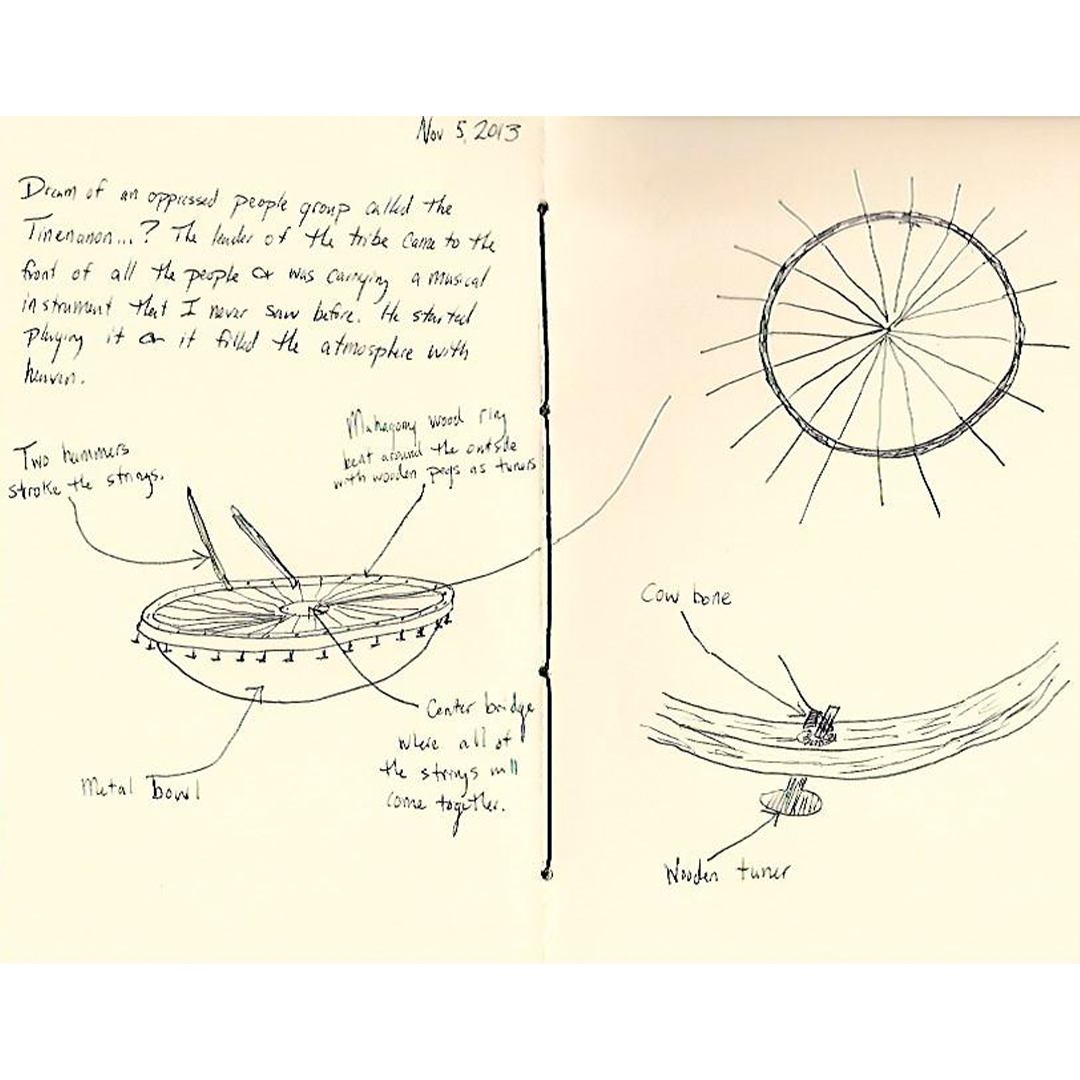 Nov 5, 2013
Dream of an oppressed people group called the
Tinenanon...? The leader of the tribe came to the
front of all the people & was carrying a musical
instrument that I never saw before. He started
playing it & it filled the atmosphere with
heaven.
Two hammers
stroke the strings.
Mahagony wood ring
beat around the outside
with wooden pegs as tuners
Center bridge
where all of
the strings will
come together.
Metal bowl
Cow bone
Wooden tuner